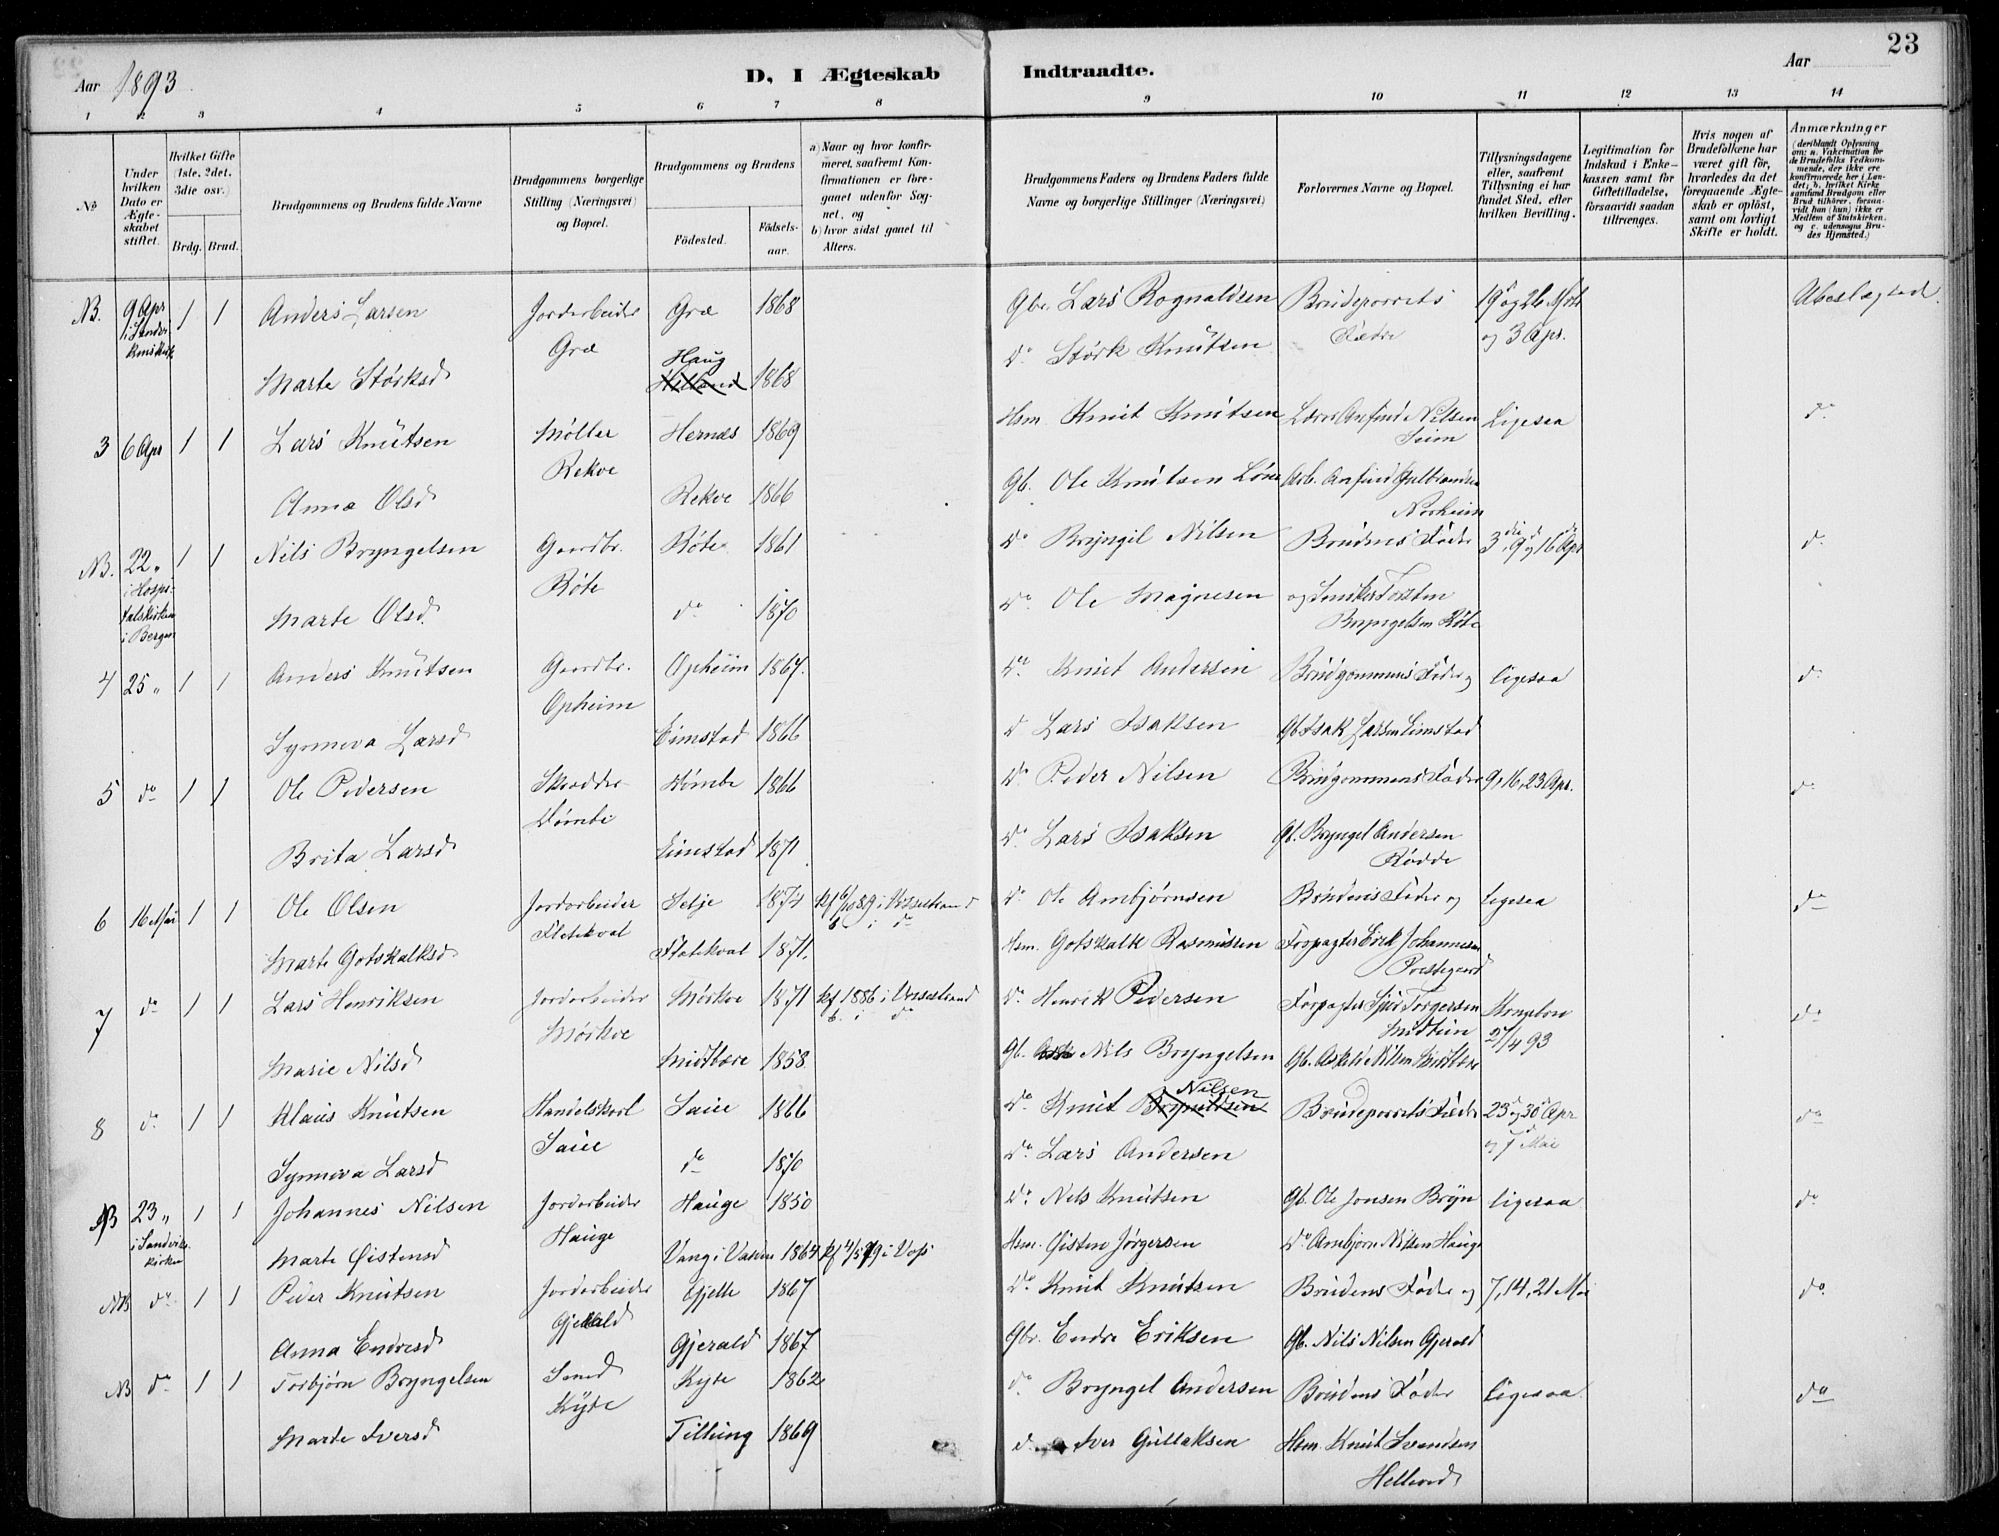 23
Aar 1893
D, I Ægteskab Indtraadte.
Aar
1 2 3 4 5 6 7 8 9 10 11 12 13 14
No
Under hvilken Dato er Ægteskabet stiftet.
Hvilket Gifte (1ste, 2det, 3die osv.)
Brdg. Brud.
Brudgommens og Brudens fulde Navne
Brudgommens borgerlige Stilling (Næringsvei) og Bopæl.
Brudgommens og Brudens
Fødested. Fødselsaar.
a) Naar og hvor konfirmeret, saafremt Konfirmationen er foregaaet udenfor Sognet, og
b) hvor sidst gaaet til Alters.
Brudgommens Faders og Brudens Faders fulde Navne og borgerlige Stillinger (Næringsvei)
Forlovernes Navne og Bopæl.
Tillysningsdagene eller, saafremt Tillysning ei har fundet Sted, efter hvilken Bevilling.
Legitimation for Indskud i Enkekassen samt for Giftetilladelse, forsaavidt saadan tiltrænges.
Hvis nogen af Brudefolkene har været gift før, hvorledes da det foregaaende Ægteskab er opløst, samt om lovligt Skifte er holdt.
Anmærkninger (deriblandt Oplysning om: a. Vakcination for de Brudefolks Vedkommende, der ikke ere konfirmerede her i Landet; b. hvilket Kirkesamfund Brudgom eller Brud tilhører, forsaavidt han (hun) ikke er Medlem af Statskirken, og c. udensogns Brudes Hjemsted.)
NB. 9 Apr 1 1 Anders Larsen Jordarbeider Græ 1868 Gbr. Lars Rognaldsen Brudeparrets 19 og 26 Mrts Ubeslægted.
i Sandvikenskirk Græ Fædre og 3 Apr.
Marte Størksd Haug 1868 Do Størk Knutsen
3 6 Apr 1 1 Lars Knutsen Møller Hernes 1869 Hsm. Knut Knutsen Lærer Anfind Nilsen Seim Ligesaa do
Rekve
Anna Olsd Rekve 1866 Gb. Ole Knutsen Løne Arb. Anfind Gulbrandsen Norheim
NB. 22 " 1 1 Nils Bryngelsen Gaardbr. Røte 1861 Do Bryngil Nilsen Brudens Fader 3die, 9de og 16de Apr do
i Hospitalskirken i Bergen Røte
Marte Olsd do 1870 Do Ole Magnesen og Torsten Bryngelsen Røte
4 25 " 1 1 Anders Knutsen Gaardbr. Opheim 1867. Do Knut Andersen Brudgommens Fader og ligesaa do
Opheim
Synneva Larsd Eimstad 1866 Do Lars Isaksen Gb Isak Larsen Eimstad
5 do 1 1 Ole Pedersen Skrædder Dømbe 1866 Do Peder Nilsen Brudgommens Fader 9, 16, 23 Apr. do
Dømbe
Brita Larsd Eimstad 1871 Do Lars Isaksen Gb. Bryngel Andersen Rødde
6 16 Mai 1 1 Ole Olsen Jordarbeider Selje 1874 kf 6/10 89 i Vossestrand Do Ole Ambjørnsen Brudens Fader og ligesaa do
Flatekval b i do
Marte Gotskalksd Flatekval 1871. Hsm. Gotskalk Rasmussen Forpagter Erik Johannesen Prestegaard
7 do 1 1 Lars Henriksen Jordarbeider Mørkve 1871 kf 1886 i Vossestrand Do Henrik Pedersen Forpagter Sjur Torgersen Midttun Kongebrev do
Mørkve b. i do 2/4 93
Marie Nilsd Midtbære 1858 Gb. Nils Bryngelsen Gb. Nilsen Midtbære
8 do 1 1 Klaus Knutsen Handelskarl Saue 1866 Do Knut Nilsen Brudeparrets Fædre 23 og 30 Apr do
Saue og 7 Mai
Synneva Larsd do 1870 Do Lars Andersen
NB 23 " 1 1 Johannes Nilsen Jordarbeider Hauge 1850 Do Nels Knutsen Gb. Ole Jonsen Bryn ligesaa do
i Sandvikskirken Hauge
Marte Øistensd Vang i 1864 kf 4/5 79 i Voss Hsm. Østen Jørgersen Do Ambjørn Nilsen Hauge
NB do 1 1 Peder Knutsen Jordarbeider Gjelle 1867 Do Knut Knutsen Brudens Fader og 7, 14, 21 Mai do
Gjerald
Anna Endresd Gjerald 1867 Gbr. Endre Eriksen Gb. Nils Nilsen Gjerald
NB do 1 1 Torbjørn Bryngelsen Smed Kyte 1862 do Bryngel Andersen Brudens Fader ligesaa do
Kyte
Marte Iversd Tillung 1869 d Iver Gullaksen Hsm Knut Svendsen Helland